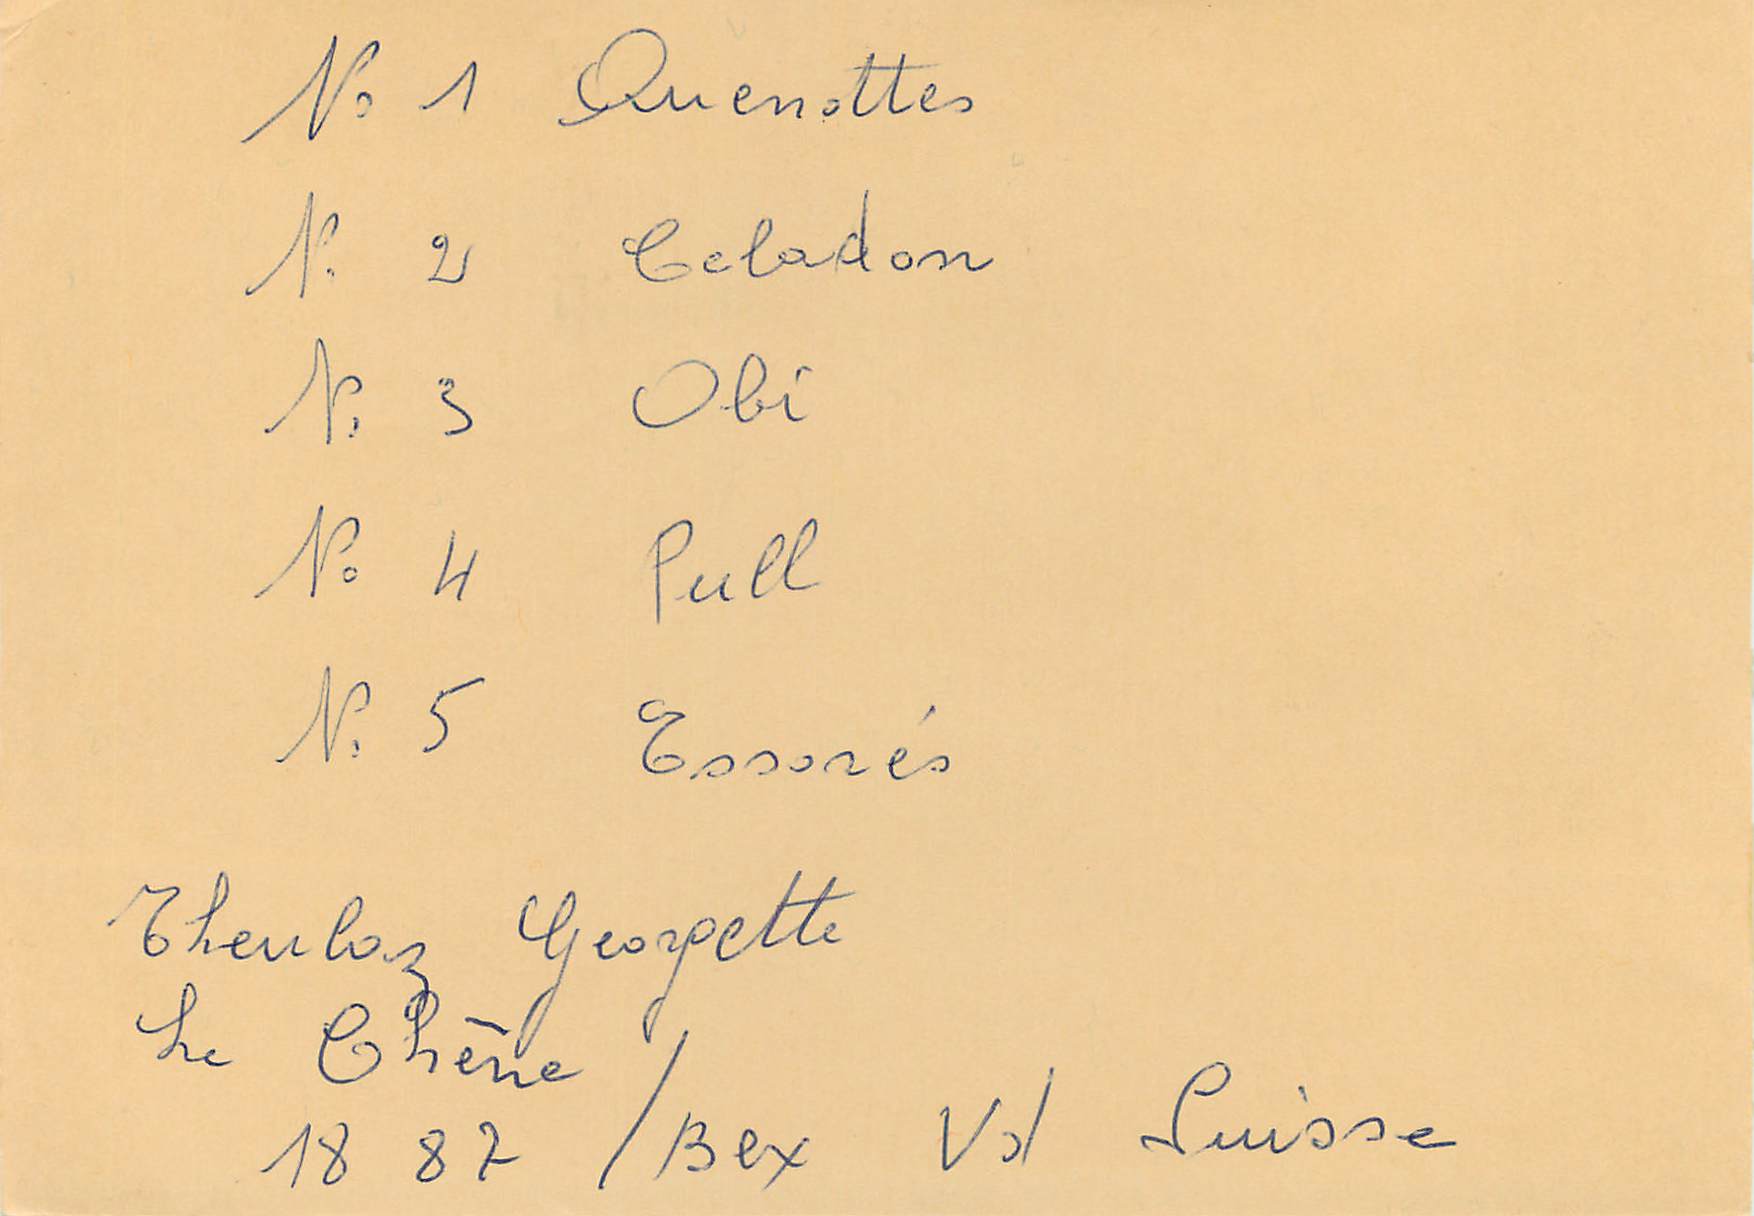 No 1 Quenottes
No 2 Celadon
No 3 Obi
No 4 Pull
No 5 Essorés
Theulaz Georgette
Le Chêne
1887 / Bex Vd Suisse